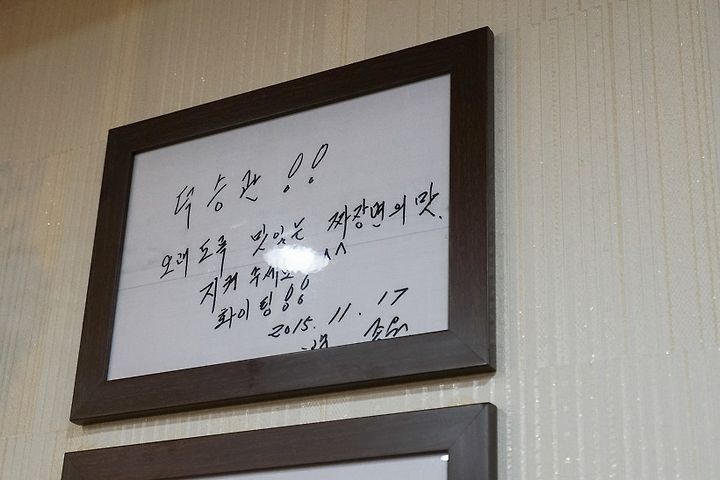 덕승관 !!
오래도록 맛있는 짜장면의 맛.
지켜 주세요 ^^
화이팅!!
2015. 11. 17